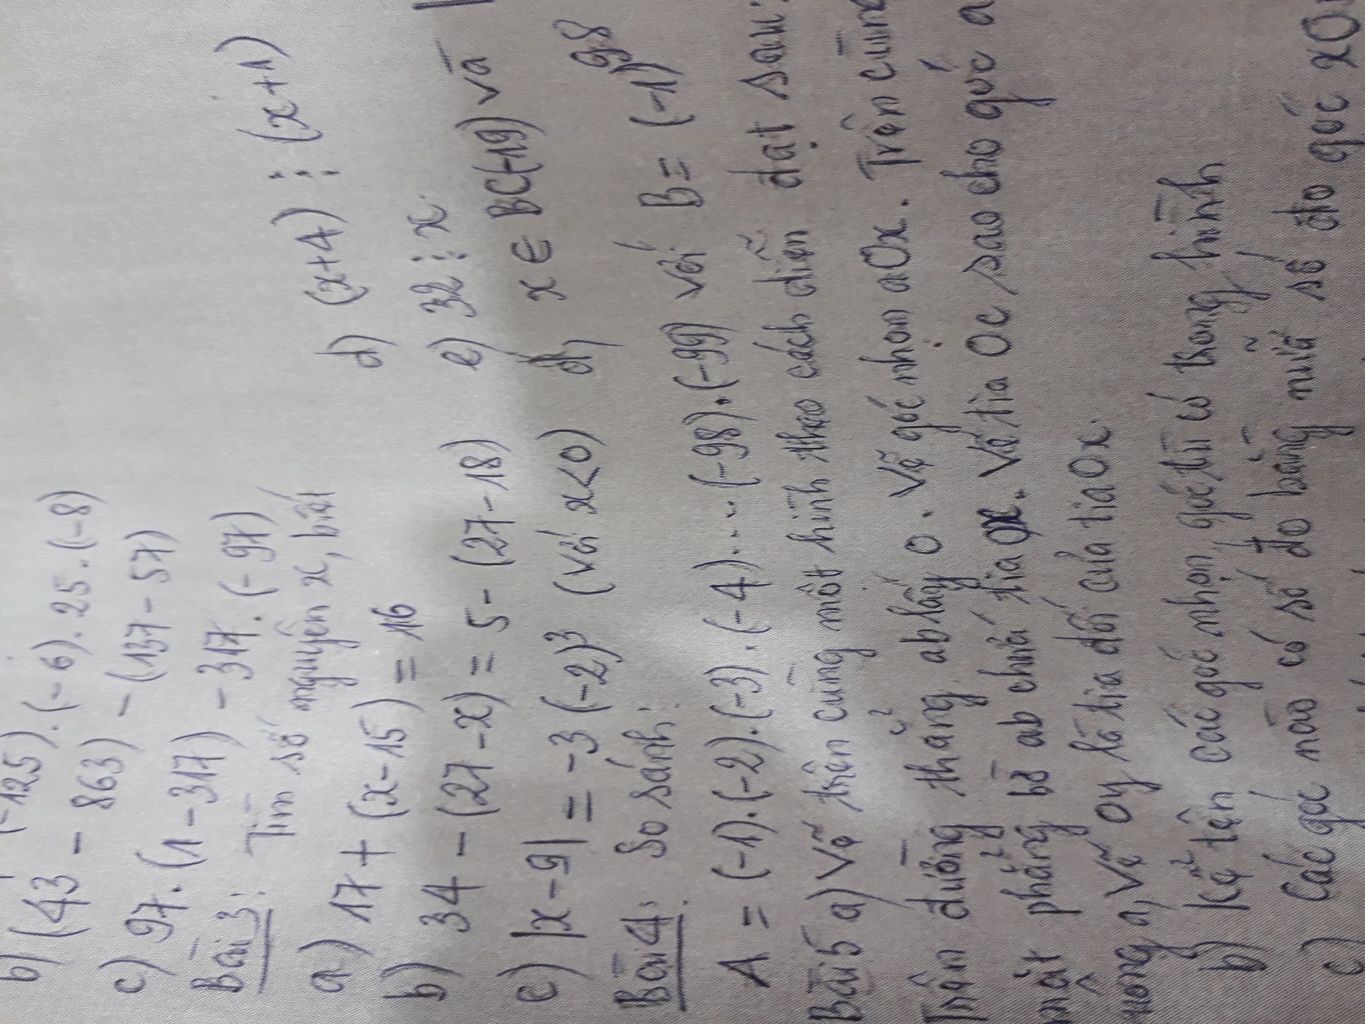 (-125).(-6).25.(-8)
b) (43 - 863) - (137 - 57)
c) 97.(1-317) - 317.(-97)
Bài 3: Tìm số nguyên x, biết
a) 17 + (x-15) = 16
b) 34 - (27-x) = 5 - (27-18)
c) |x-9| = -3(-2)³ (với x<0)
d) (x+4) ⋮ (x+1)
e) 32 ⋮ x
x ∈ BC(-19) và
Bài 4: So sánh:
A = (-1).(-2).(-3).(-4)....(-98).(-99) với B = (-1)⁹⁸
Bài 5 a) Vẽ trên cùng một hình theo cách diễn đạt sau:
Trên đường thẳng ab lấy O. Vẽ góc nhọn aOx. Trên cùng
mặt phẳng bờ ab chứa tia Ox. Vẽ tia Oc sao cho góc a
vuông a, Vẽ Oy là tia đối của tia Ox.
b) Kể tên các góc nhọn, góc tù có trong hình
c) Các góc nào có số đo bằng nửa số đo góc xO